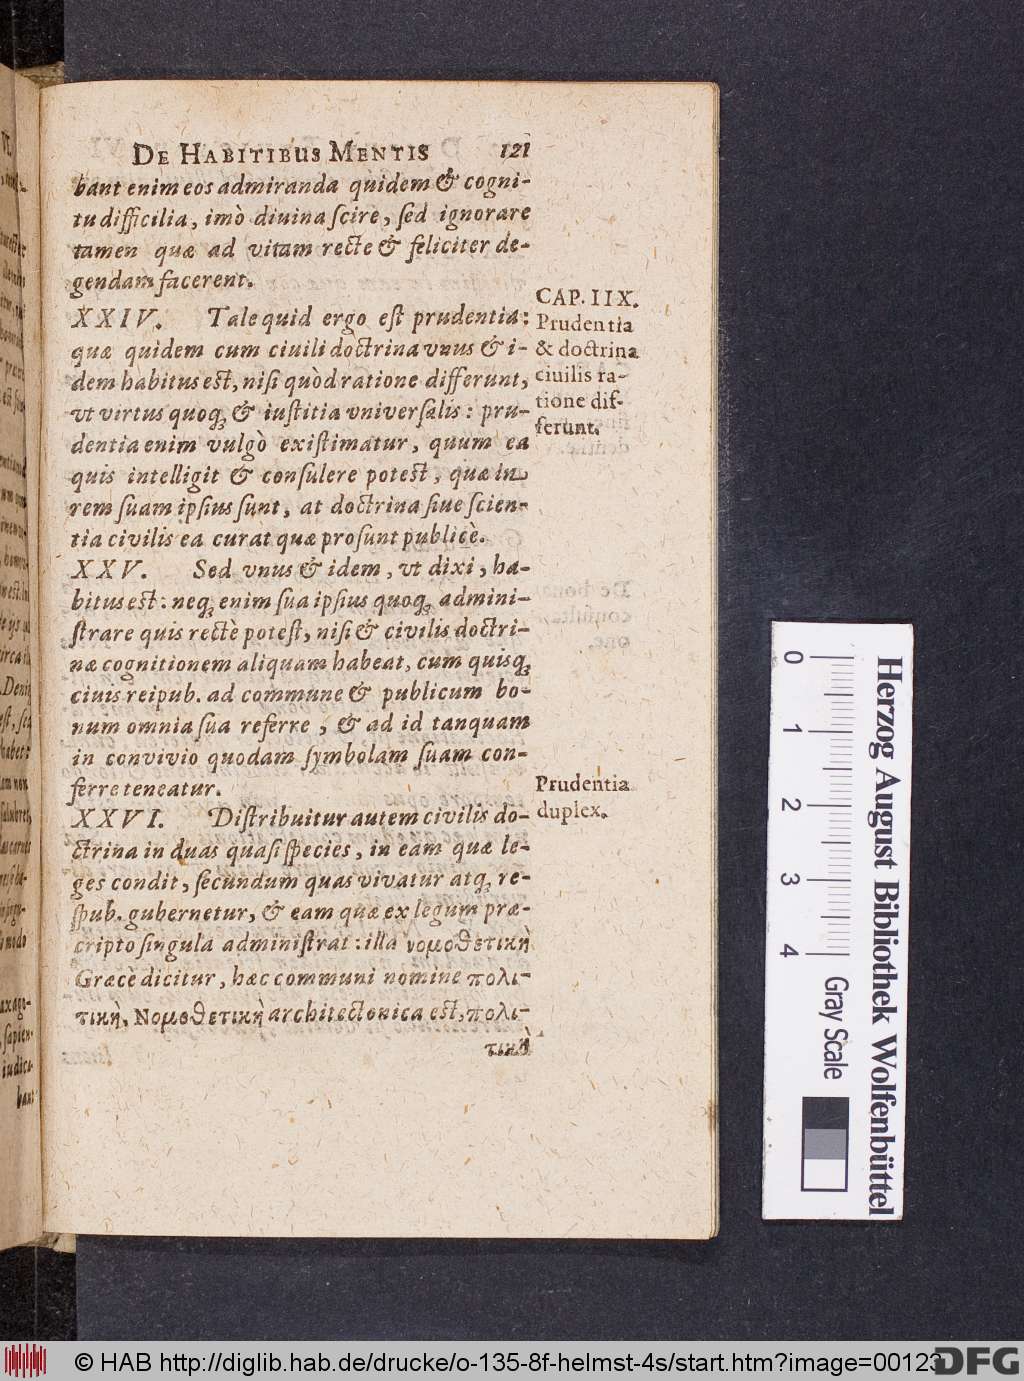 DE HABITIBUS MENTIS 121
bant enim eos admiranda quidem & cogni-
tu difficilia, imò diuina ſcire, ſed ignorare
tamen quæ ad vitam recte & feliciter de-
gendam facerent.
XXIV. Tale quid ergo eſt prudentia:
quæ quidem cum ciuili doctrina vnus & i-
dem habitus est, niſi quòd ratione differunt,
vt virtus quoq; & iuſtitia vniuerſalis: pru-
dentia enim vulgò exiſtimatur, quum ea
quis intelligit & conſulere potest, quæ in
rem ſuam ipſius ſunt, at doctrina ſiue ſcien-
tia civilis ea curat quæ proſunt publicè.
XXV. Sed vnus & idem, vt dixi, ha-
bitus est: neq; enim ſua ipſius quoq; admini-
ſtrare quis rectè poteſt, niſi & civilis doctri-
næ cognitionem aliquam habeat, cum quisq;
ciuis reipub. ad commune & publicum bo-
num omnia ſua referre, & ad id tanquam
in convivio quodam ſymbolam ſuam con-
ferre teneatur.
XXVI. Diſtribuitur autem civilis do-
ctrina in duas quaſi ſpecies, in eam quæ le-
ges condit, ſecundum quas vivatur atq; re-
ſpub. gubernetur, & eam quæ ex legum præ-
cripto ſingula adminiſtrat: illa νομοθετικὴ
Græcè dicitur, hæc communi nomine πολι-
τικὴ, Νομοθετικὴ architectonica est, πολι-
τικὴ
CAP. IIX.
Prudentia
& doctrina
ciuilis ra-
tione dif-
ferunt.
Prudentia
duplex.
0 1 2 3 4
Gray Scale
Herzog August Bibliothek Wolfenbüttel
© HAB http://diglib.hab.de/drucke/o-135-8f-helmst-4s/start.htm?image=00123
DFG